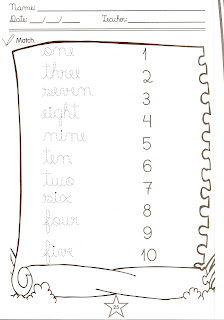 Name:
Date: __/__/__ Teacher:
Match.
one 1
three 2
seven 3
eight 4
nine 5
ten 6
two 7
six 8
four 9
five 10
25